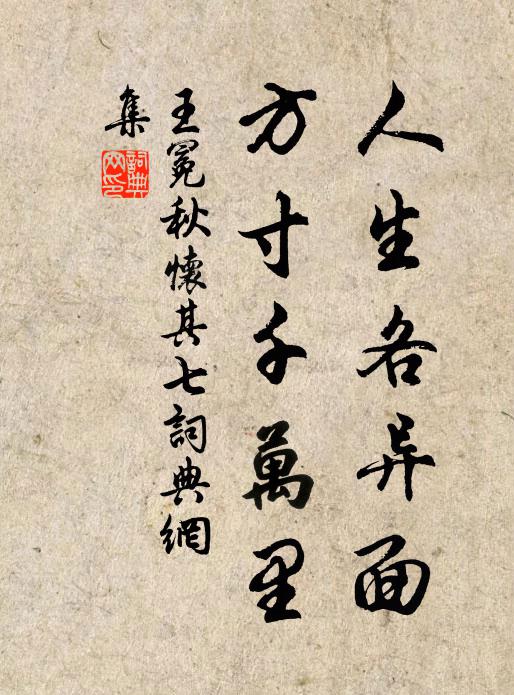 人生各异面
方寸千萬里
王冕秋懷其七詞典網
集
詞典
网印